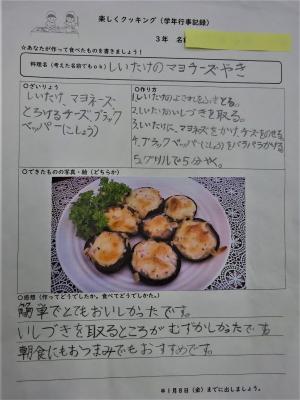 楽しくクッキング（学年行事記録）
3年 名
☆あなたが作って食べたものを書きましょう！
料理名（考えた名前でもok） しいたけのマヨチーズやき
○ざいりょう
しいたけ、マヨネーズ
とろけるチーズ、ブラック
ペッパー(こしょう)
○作り方
1.しいたけのよごれをふきとる。
2.しいたけのいしづきを取る。
3.しいたけに、マヨネズをかけ、チーズをのせる。
4.ブラックペッパー(こしょう)をパラパラかける。
5.グリルで5分やく。
○できたものの写真・絵（どちらか）
○感想（作ってどうでしたか。食べてどうでしたか。）
簡単でとてもおいしかったです。
いしづきを取るところがむずかしかったです。
朝食にもおつまみでもおすすめです。
※1月8日（金）までに出しましょう。